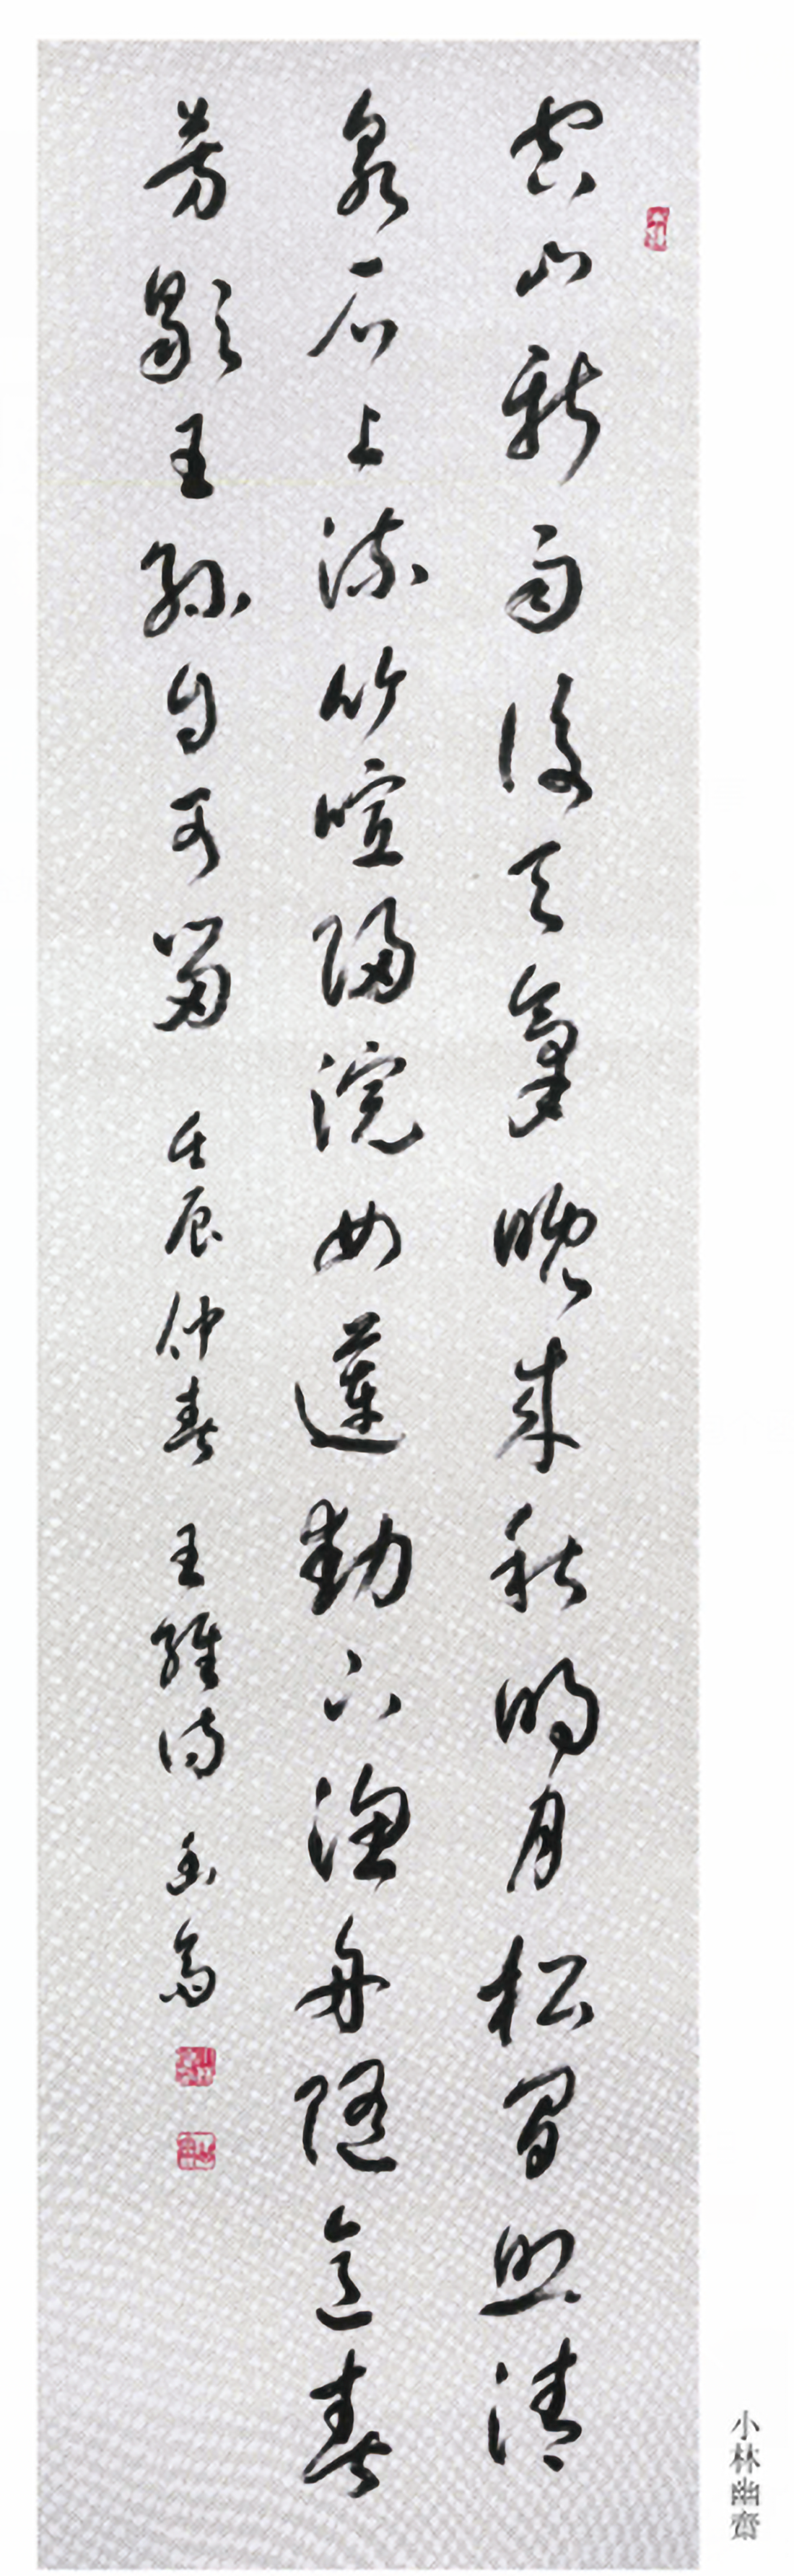 空山新雨後天氣晚来秋明月松間照清
泉石上流竹喧歸浣女蓮動下漁舟隨意春
芳歇王孫自可留 壬辰仲春 王維詩 幽斎
小林幽齋